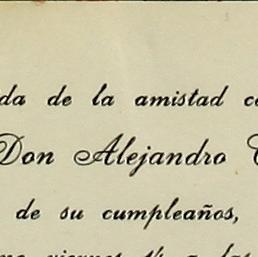 da de la amistad c
Don Alejandro
de su cumpleaños,
viernes 14 a las